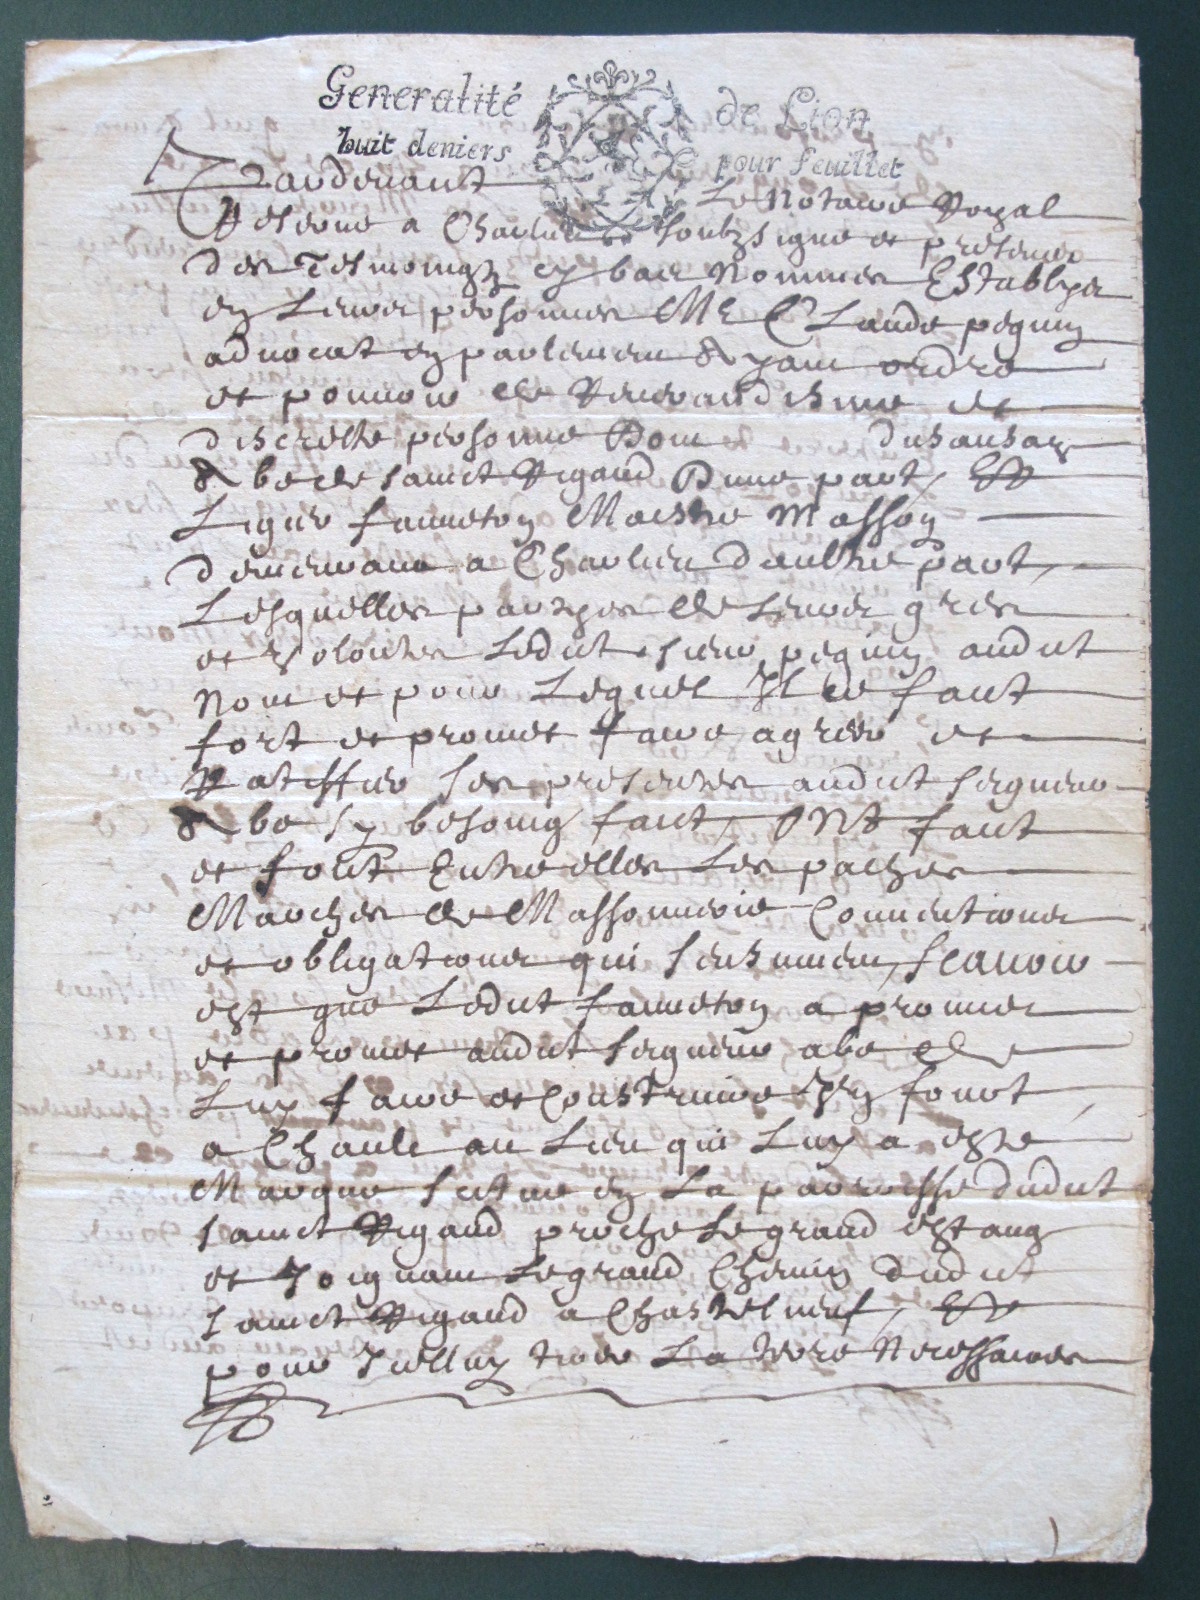 Generalité de Lion
huit deniers pour feuillet
Pardevant Le Notaire Royal
Reservé a Charlieu soubzsigné et presence
des Tesmoingz cy bas Nommes Establyes
en Leurs personnes Me Claude peguin
advocat en parlement Ayant ordre
et pouvoir de Reverandisime et
discrette personne Dom
Abe de sainct Rigaud D'une part, Et
Ligier fauneton Maistre Masson
demeurant a Charlieu d'aultre part,
Lesquelles partyes de Leurs gres
et volontes Ledict sieur peguin audict
Nom et pour Lequel Il se faict
fort et promet faire agreer et
Ratiffier ses presentes audict seigneur
Abe sy besoing faict, Ont faict
et font Entre elles Les paches
Marches de Massonnerie Conventiones
et obligationes qui sensuivent, scavoir
est que Ledict fauneton a promis
et promet audict seigneur abe de
Luy faire et Construire Ung fourt
a Chault au Lieu qui Luy a este
Marque scitue en La parroisse dudict
sainct Rigaud proche Le grand estang
et Joignant Le grand Chemin dudict
sainct Rigaud a Chastelneuf, Et
pour Icelluy tirer La terre Necessaires